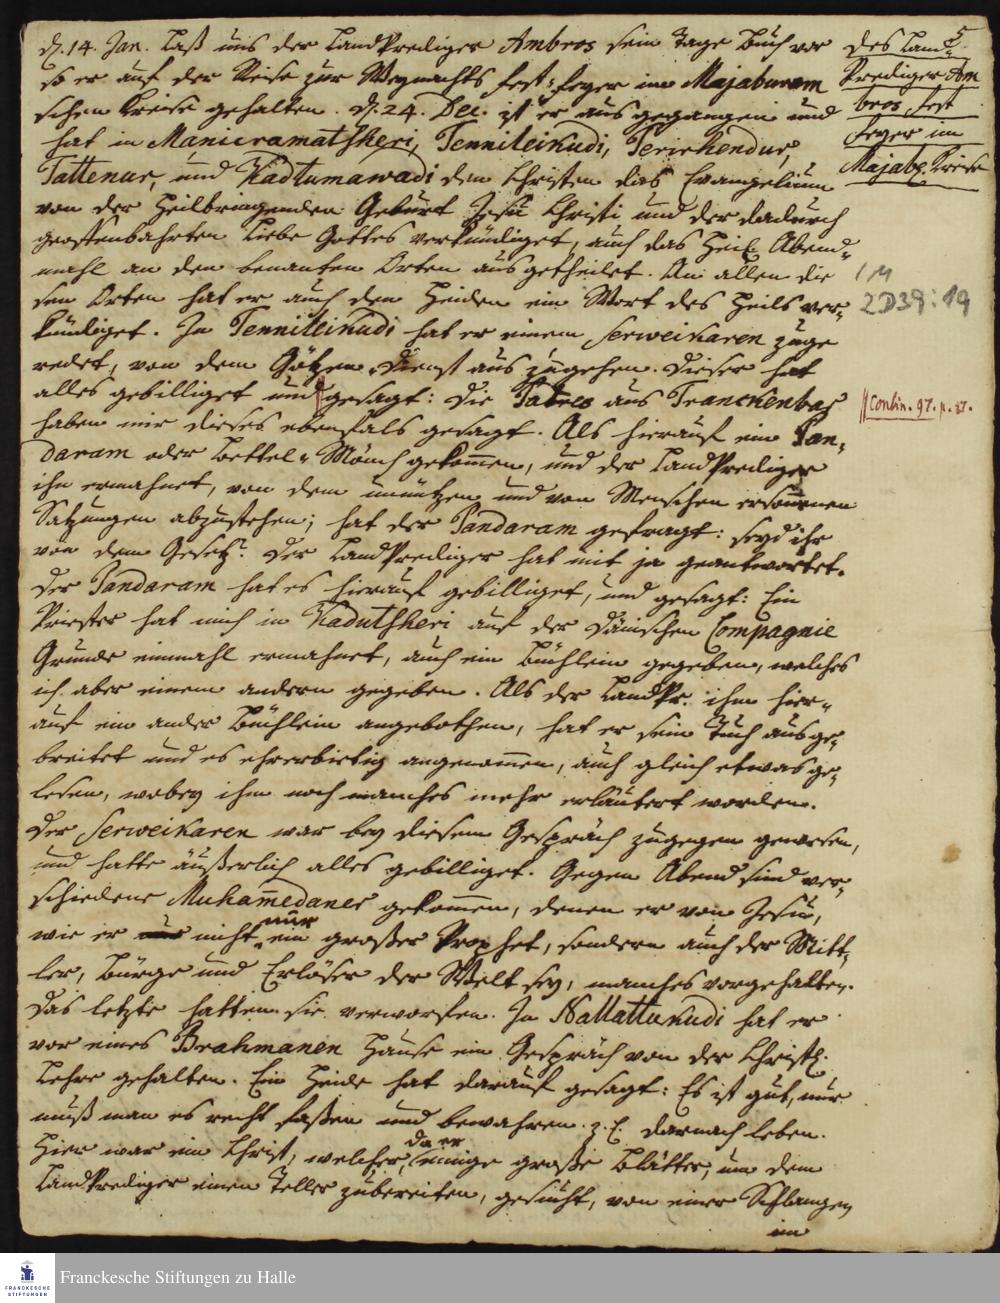 5
d. 14. Jan. Las uns der LandPrediger Ambros sein Tage Buch vor
so er auf der Reise zur Weynachts fest-feyer im Majaburam
schen Kreise gehalten. d. 24. Dec. ist er aus gegangen und
hat in Manicramatsheri, Tennileikudi, Perichendur,
Tattenur, und Kadtumawadi den Christen das Evangelium
von der Heilbringenden Geburt Jesu Christi und der dadurch
geoffenbahrten Liebe Gottes verkündiget, auch das Heil. Abend-
mahl an den benanten Orten ausgetheilet. An allen die
sen Orten hat er auch den Heiden ein Wort des Heils ver-
kündiget. In Tennileikudi hat er einem Serweikaren zuge
redet, von dem Götzen-Dienst aus zugehen. Dieser hat
alles gebilliget und gesagt: Die Patres aus Tranckenbar
haben mir dieses ebenfals gesagt. Als hierauf ein Pan-
daram oder Bettel-Mönch gekommen, und der LandPrediger
ihn ermahnet, von dem unnützen und von Menschen ersonnenen
Satzungen abzustehen; hat der Pandaram gefragt: seyd ihr
von dem Gesetz? Der LandPrediger hat mit ja geantwortet.
Der Pandaram hat es hierauf gebilliget, und gesagt: Ein
Priester hat mich in Kadutsheri auf der Dänischen Compagnie
Grunde einmahl ermahnet, auch ein Büchlein gegeben, welches
ich aber einem andern gegeben. Als der LandPr. ihm hier-
auf ein ander Büchlein angebothen, hat er sein Tuch ausge-
breitet und es ehrerbietig angenommen, auch gleich etwas ge-
lesen, wobey ihm noch manches mehr erläutert worden.
Der Serweikaren war bey diesem Gespräch zugegen gewesen,
und hatte äußerlich alles gebilliget. Gegen Abend sind ver-
schiedene Muhammedaner gekommen, denen er von Jesu,
wie er nicht nur ein großer Prophet, sondern auch der Mitt-
ler, Bürge und Erlöser der Welt sey, manches vorgehalten.
Das letzte hatten sie verworfen. In Nallattukudi hat er
vor eines Brahmanen Hause ein Gespräch von der Christl.
Lehre gehalten. Ein Heide hat darauf gesagt: Es ist gut, nur
muß man es recht faßen und bewahren. z. E. darnach leben.
Hier war ein Christ, welcher, da er einige große Blätter, um dem
LandPrediger einen Teller zubereiten, gesucht, von einer Schlangen
im
des Land-
Prediger Am
bros, fest
feyer im
Majab. Kreise
1 M
2D39:19
Contin. 97. p. 37.
FRANCKESCHE
STIFTUNGEN
Franckesche Stiftungen zu Halle